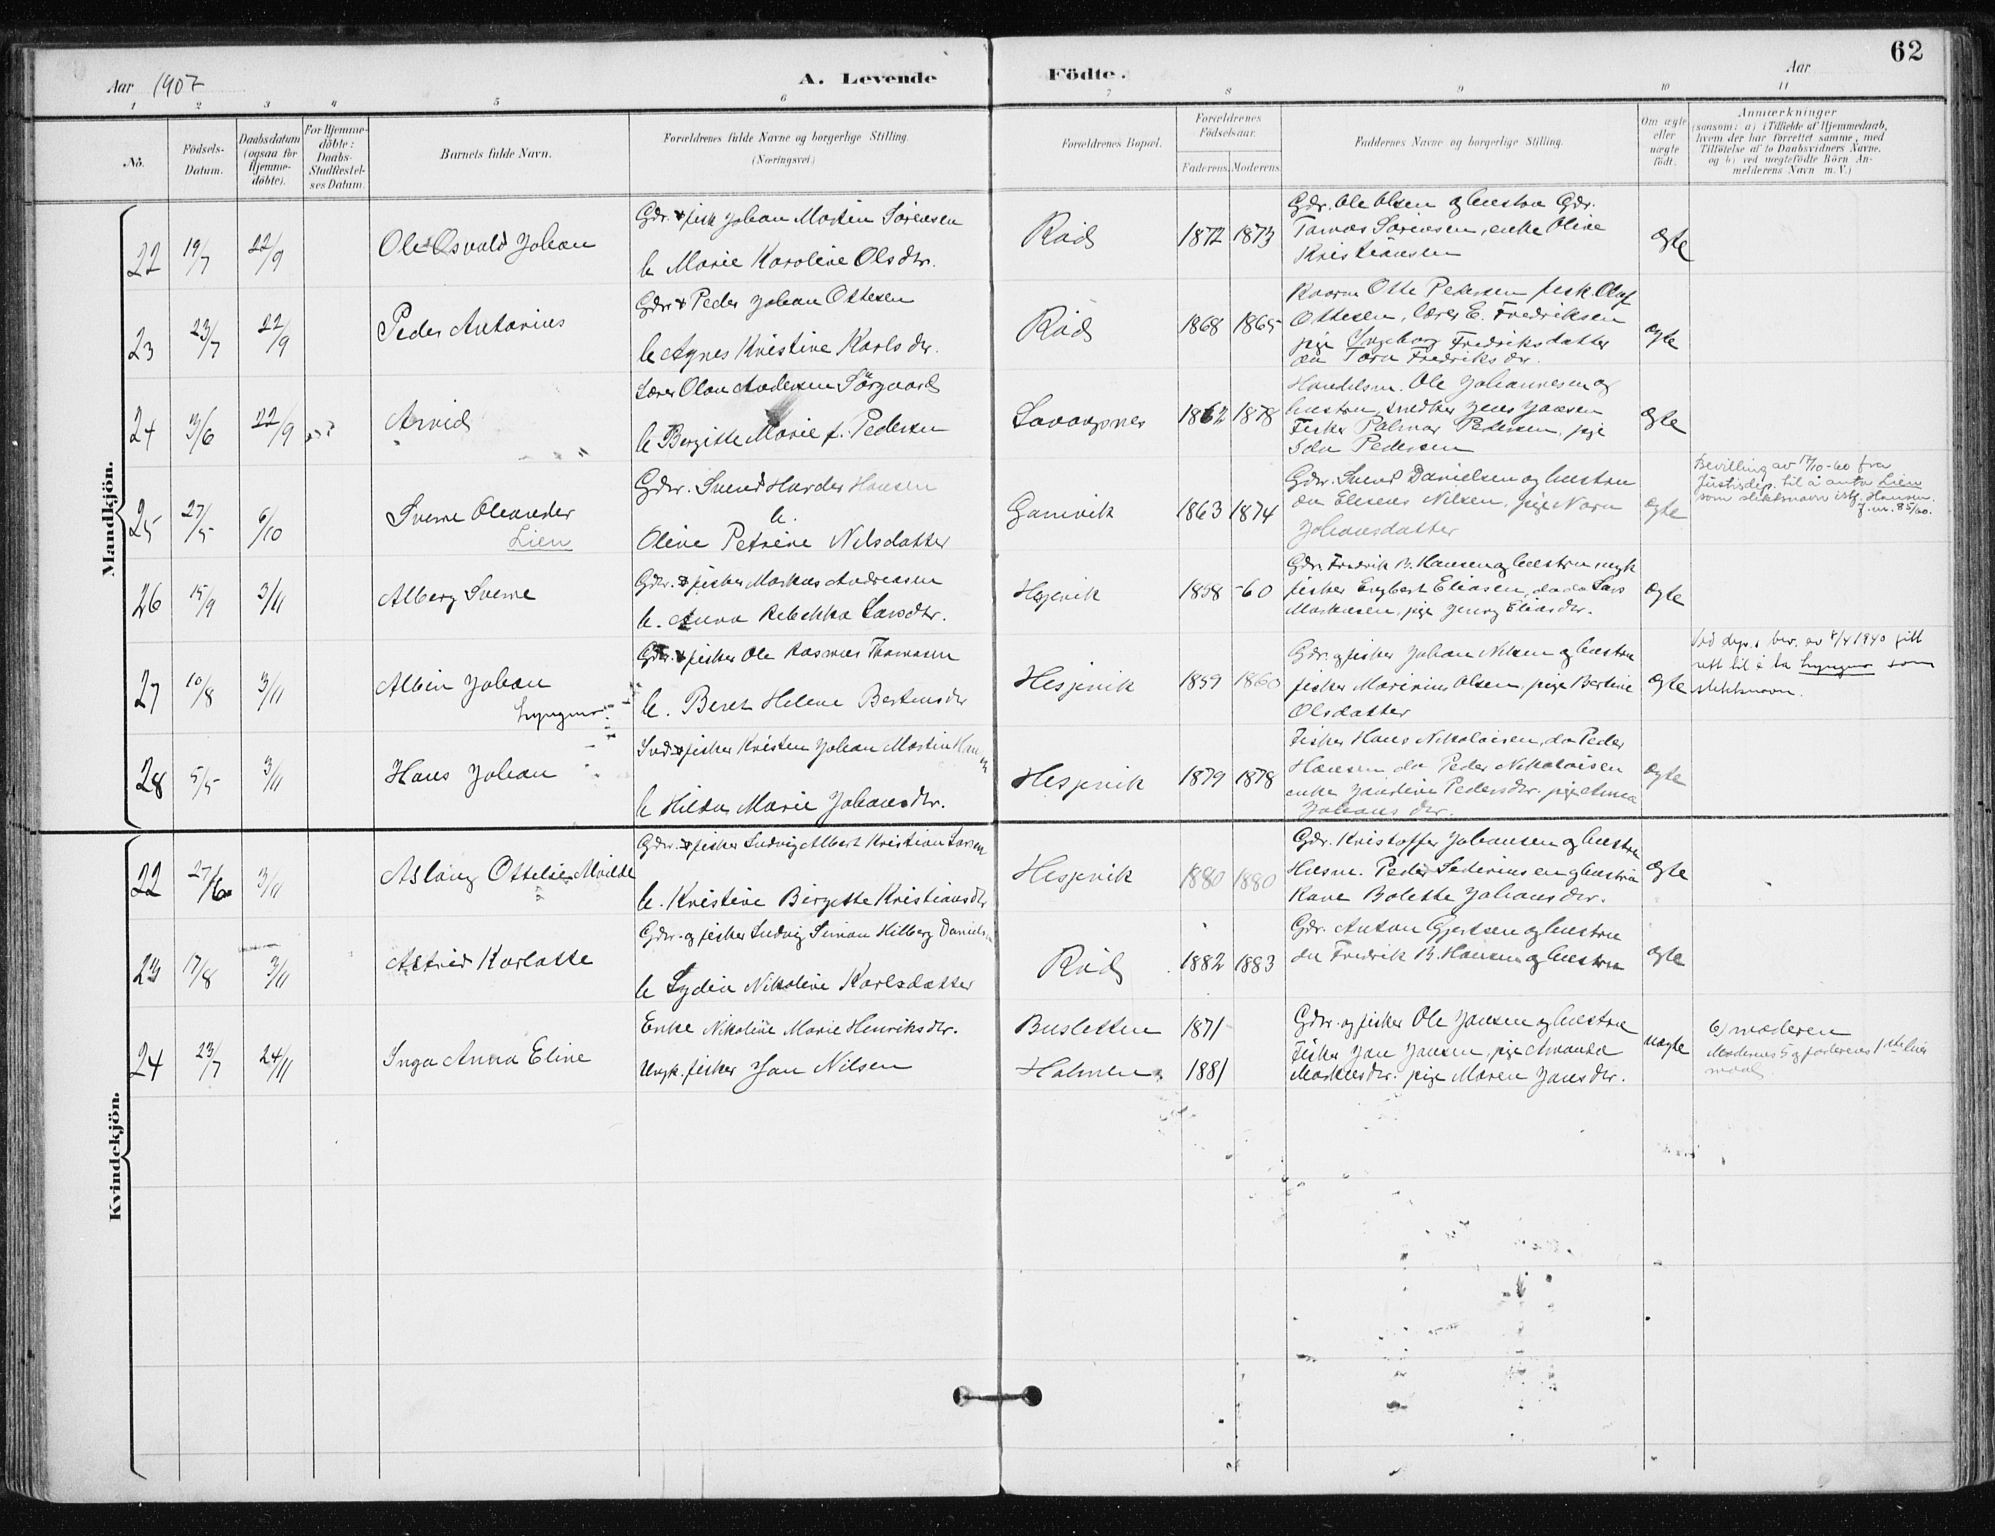 62
Aar 1907
A. Levende
Födte.
Aar
1 2 3 4 5 6 7 8 9 10 11
No.
Födsels-
Datum.
Daabsdatum
(ogsaa for
Hjemme-
döbte).
For Hjemme-
döbte:
Daabs-
Stadfæstel-
ses Datum.
Barnets fulde Navn.
Forældrenes fulde Navne og borgerlige Stilling.
(Næringsvei)
Forældrenes Bopæl.
Forældrenes
Födselsaar.
Faderens. Moderens.
Faddernes Navne og borgerlige Stilling.
Om ægte
eller
uægte
født.
Anmærkninger
(saasom: a) i Tilfælde af Hjemmedaab,
hvem der har forrettet samme, med
Tilföielse af to Daabsvidners Navne,
og b) ved uægtefödte Börn An-
melderens Navn m. V.)
Mandkjön.
22 19/7 22/9 Ole Osvald Johan
Gdr. & fisk Johan Martin Sörensen
h Marie Karoline Olsdtr.
Röd 1872 1873
Gdr. Ole Olsen og hustru Gdr.
Tomas Sörensen, enke Oline
Kristiansen
ægte
23 23/7 22/9 Peder Antonius
Gdr & Peder Johan Ottesen
h Agnes Kristine Karlsdtr.
Röd 1868 1865
Otte Pedersen fisk. Olaf
Ottesen, lærer E. Fredriksen
pige Ingeborg Fredriksdatter
do Tora Fredriksdtr.
ægte
24 13/6 22/9 Arvid
Lærer Olau Andersen Sörgaard
h Bergitte Marie f. Pedersen
1862 1878
Handelsm. Ole Johannesen og
hustru, snedker Jens Jansen
Fisker Palmar Pedersen, pige
Ida Pedersen
ægte
25 27/5 6/10 Sverre Oleander
Lien
Gdr. Svend Harder Hansen
h.
Oline Petrine Nilsdatter
Ganvik 1863 1874
Gdr. Svend Danielsen og hustru
do Eliseus Nilsen, pige Nora
Johansdatter
ægte
Bevilling av 17/10-60 fra
Justisdep. til å anta Lien
som slektsnavn istf. Hansen.
J.nr. 85/60.
26 15/9 3/11 Alberg Sverre
Gdr. & fisker Markus Andreasen
h. Anna Rebekka Larsdtr.
Hesjevik 1858 -60
Gdr. Fredrik B. Hansen og hustru ungk
fisker Engbert Eliasen, do do Lars
Markusen, pige Jenny Eliasdtr.
ægte
27 10/8 3/11 Albin Johan
Lyngmo
Gdr. & fisker Ole Rasmus Thomasen
h. Beret Helene Bertensdtr
Hesjevik 1859 1860
Gdr. og fisker Johan Nilsen og hustru
fisker Marinius Olsen, pige Bertine
Olsdatter
ægte
Ved dep.s bev. av 8/4 1940 gitt
rett til å ta Lyngmo som
slektsnavn.
28 5/5 3/11 Hans Johan
Ind. & fisker Kristen Johan Martin Hansen
h Hilda Marie Johansdtr.
Hesjevik 1879 1878
Fisker Hans Nikolaisen, do Peder
Hansen do Peder Nikolaisen
enke Jandine Pedersdtr. pige Anna
Johansdtr.
ægte
Kvindekjön.
22 27/6 3/11 Aslaug Ottelie Mvilde
Gdr. & fisker Ludvig Albert Kristian Larsen
h. Kristine Birgitte Kristiansdtr
Hesjevik 1880 1880
Gdr. Kristoffer Johansen og hustru
Husm. Peder Sederiusen og hustru
Kone Bolette Johansdtr.
ægte
23 17/8 3/11 Astrid Karlotte
Gdr. og fisker Ludvig Simon Hilberg Danielsen
h Lydia Nikoline Karlsdatter
Röd 1882 1883
Gdr. Anton Gjertsen og hustru
do Fredrik B. Hansen og hustru
ægte
24 23/7 24/11 Inga Anna Eline
Enke Nikoline Marie Henriksdtr.
Ungk. fisker Jan Nilsen
Busletten 1871
Holmen 1881
Gdr. og fisker Ole Jansen og hustru
Fisker Jan Jansen, pige Amanda
Markusdtr. pige Maren Jansdtr.
uægte
b) moderen
Moderens 5 og faderens 1ste leier
maal